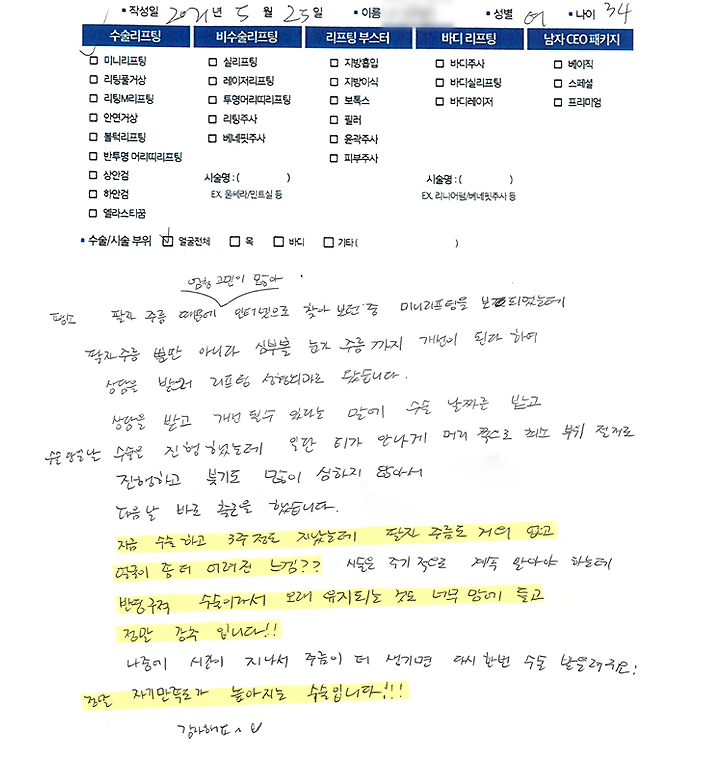 • 작성일 2021년 5월 25일 • 이름 • 성별 여 • 나이 34
수술리프팅 비수술리프팅 리프팅 부스터 바디 리프팅 남자 CEO 패키지
미니리프팅 실리프팅 지방흡입 바디주사 베이직
리팅풀거상 레이저리프팅 지방이식 바디실리프팅 스페셜
리팅M리프팅 투명머리띠리프팅 보톡스 바디레이저 프리미엄
안면거상 리팅주사 필러
볼턱리프팅 베네핏주사 윤곽주사
반투명 머리띠리프팅 피부주사
상안검 시술명 : ( ) 시술명 : ( )
하안검 EX. 울쎄라/민트실 등 EX. 리니어펌/베네핏주사 등
엘라스티꿈
• 수술/시술 부위 얼굴전체 목 바디 기타 ( )
고민이 많아
평소 팔자 주름 때문에 인터넷으로 찾아 보던 중 미니리프팅을 보게 되었는데
팔자주름 뿐만 아니라 심부볼 눈가 주름까지 개선이 된다 하여
상담을 받으러 리프팅 성형외과로 왔습니다.
상담을 받고 개선 될수 있다는 말에 수술 날짜를 받고
수술 당일날 수술은 진행했는데 일단 티가 안나게 머리 쪽으로 최소 부위 절개로
진행하고 붓기도 많이 심하지 않아서
다음날 바로 출근을 했습니다.
지금 수술하고 3주 정도 지났는데 팔자 주름도 거의 없고
얼굴이 좀 더 어려진 느낌?? 시술은 주기적으로 계속 받아야 하는데
반영구적 수술이라서 오래 유지되는 것도 너무 맘에 들고
정말 강추 입니다!!
나중에 시간이 지나서 주름이 더 생기면 다시한번 수술 받을려구요!
정말 자기만족도가 높아지는 수술입니다!!!
감사해요^^